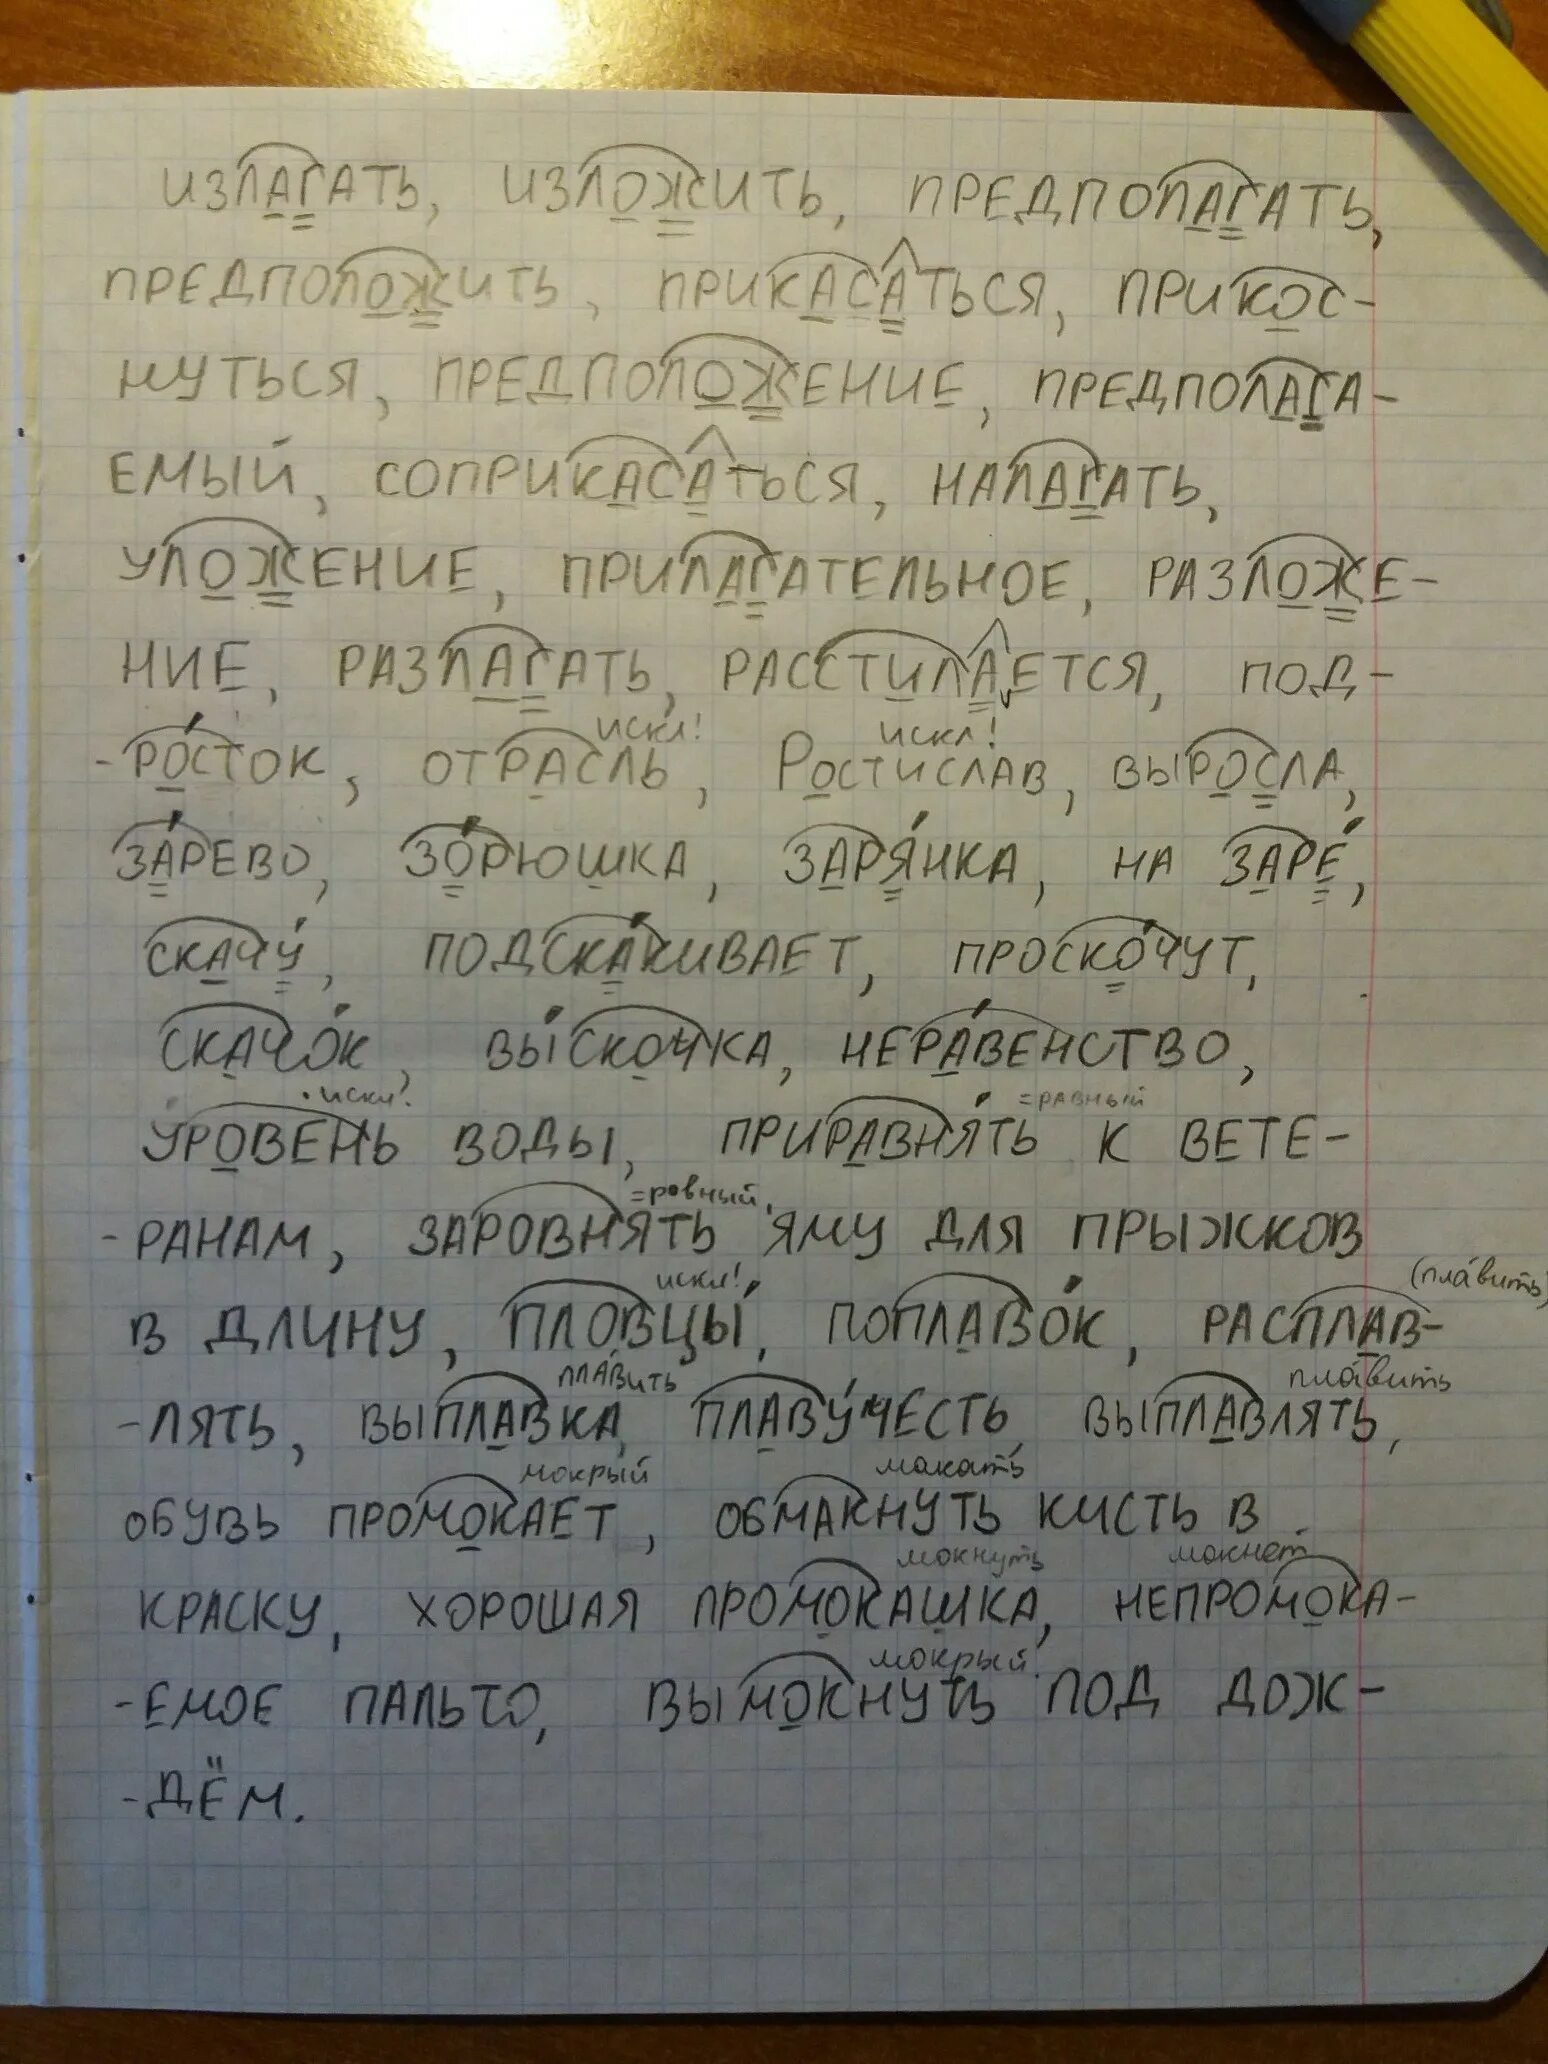 ИЗЛАГАТЬ, ИЗЛОЖИТЬ, ПРЕДПОЛАГАТЬ,
ПРЕДПОЛОЖИТЬ, ПРИКАСАТЬСЯ, ПРИКОС-
НУТЬСЯ, ПРЕДПОЛОЖЕНИЕ, ПРЕДПОЛАГА-
ЕМЫЙ, СОПРИКАСАТЬСЯ, НАЛАГАТЬ,
УЛОЖЕНИЕ, ПРИЛАГАТЕЛЬНОЕ, РАЗЛОЖЕ-
НИЕ, РАЗЛАГАТЬ, РАССТИЛАЕТСЯ, ПОД-
искл! искл!
-РО́СТОК, ОТРАСЛЬ, РОСТИСЛАВ, ВЫРОСЛА,
ЗА́РЕВО, ЗО́РЮШКА, ЗАРЯ́НКА, НА ЗАРЕ́,
СКАЧУ́, ПОДСКА́КИВАЕТ, ПРОСКО́ЧУТ,
СКАЧО́К, ВЫ́СКОЧКА, НЕРА́ВЕНСТВО,
искл! =равный
У́РОВЕНЬ ВОДЫ, ПРИРАВНЯ́ТЬ К ВЕТЕ-
=ровный
-РАНАМ, ЗАРОВНЯТЬ ЯМУ ДЛЯ ПРЫЖКОВ
искл! (пла́вить)
В ДЛИНУ, ПЛОВЦЫ́, ПОПЛАВО́К, РАСПЛАВ-
пла́вить пла́вить
-ЛЯТЬ, ВЫПЛАВКА, ПЛАВУ́ЧЕСТЬ, ВЫПЛАВЛЯТЬ,
мокрый макать
ОБУВЬ ПРОМОКАЕТ, ОБМАКНУТЬ КИСТЬ В
мокнуть мокнет
КРАСКУ, ХОРОШАЯ ПРОМОКАШКА, НЕПРОМОКА-
мокрый
-ЕМОЕ ПАЛЬТО, ВЫМОКНУТЬ ПОД ДОЖ-
-ДЁМ.